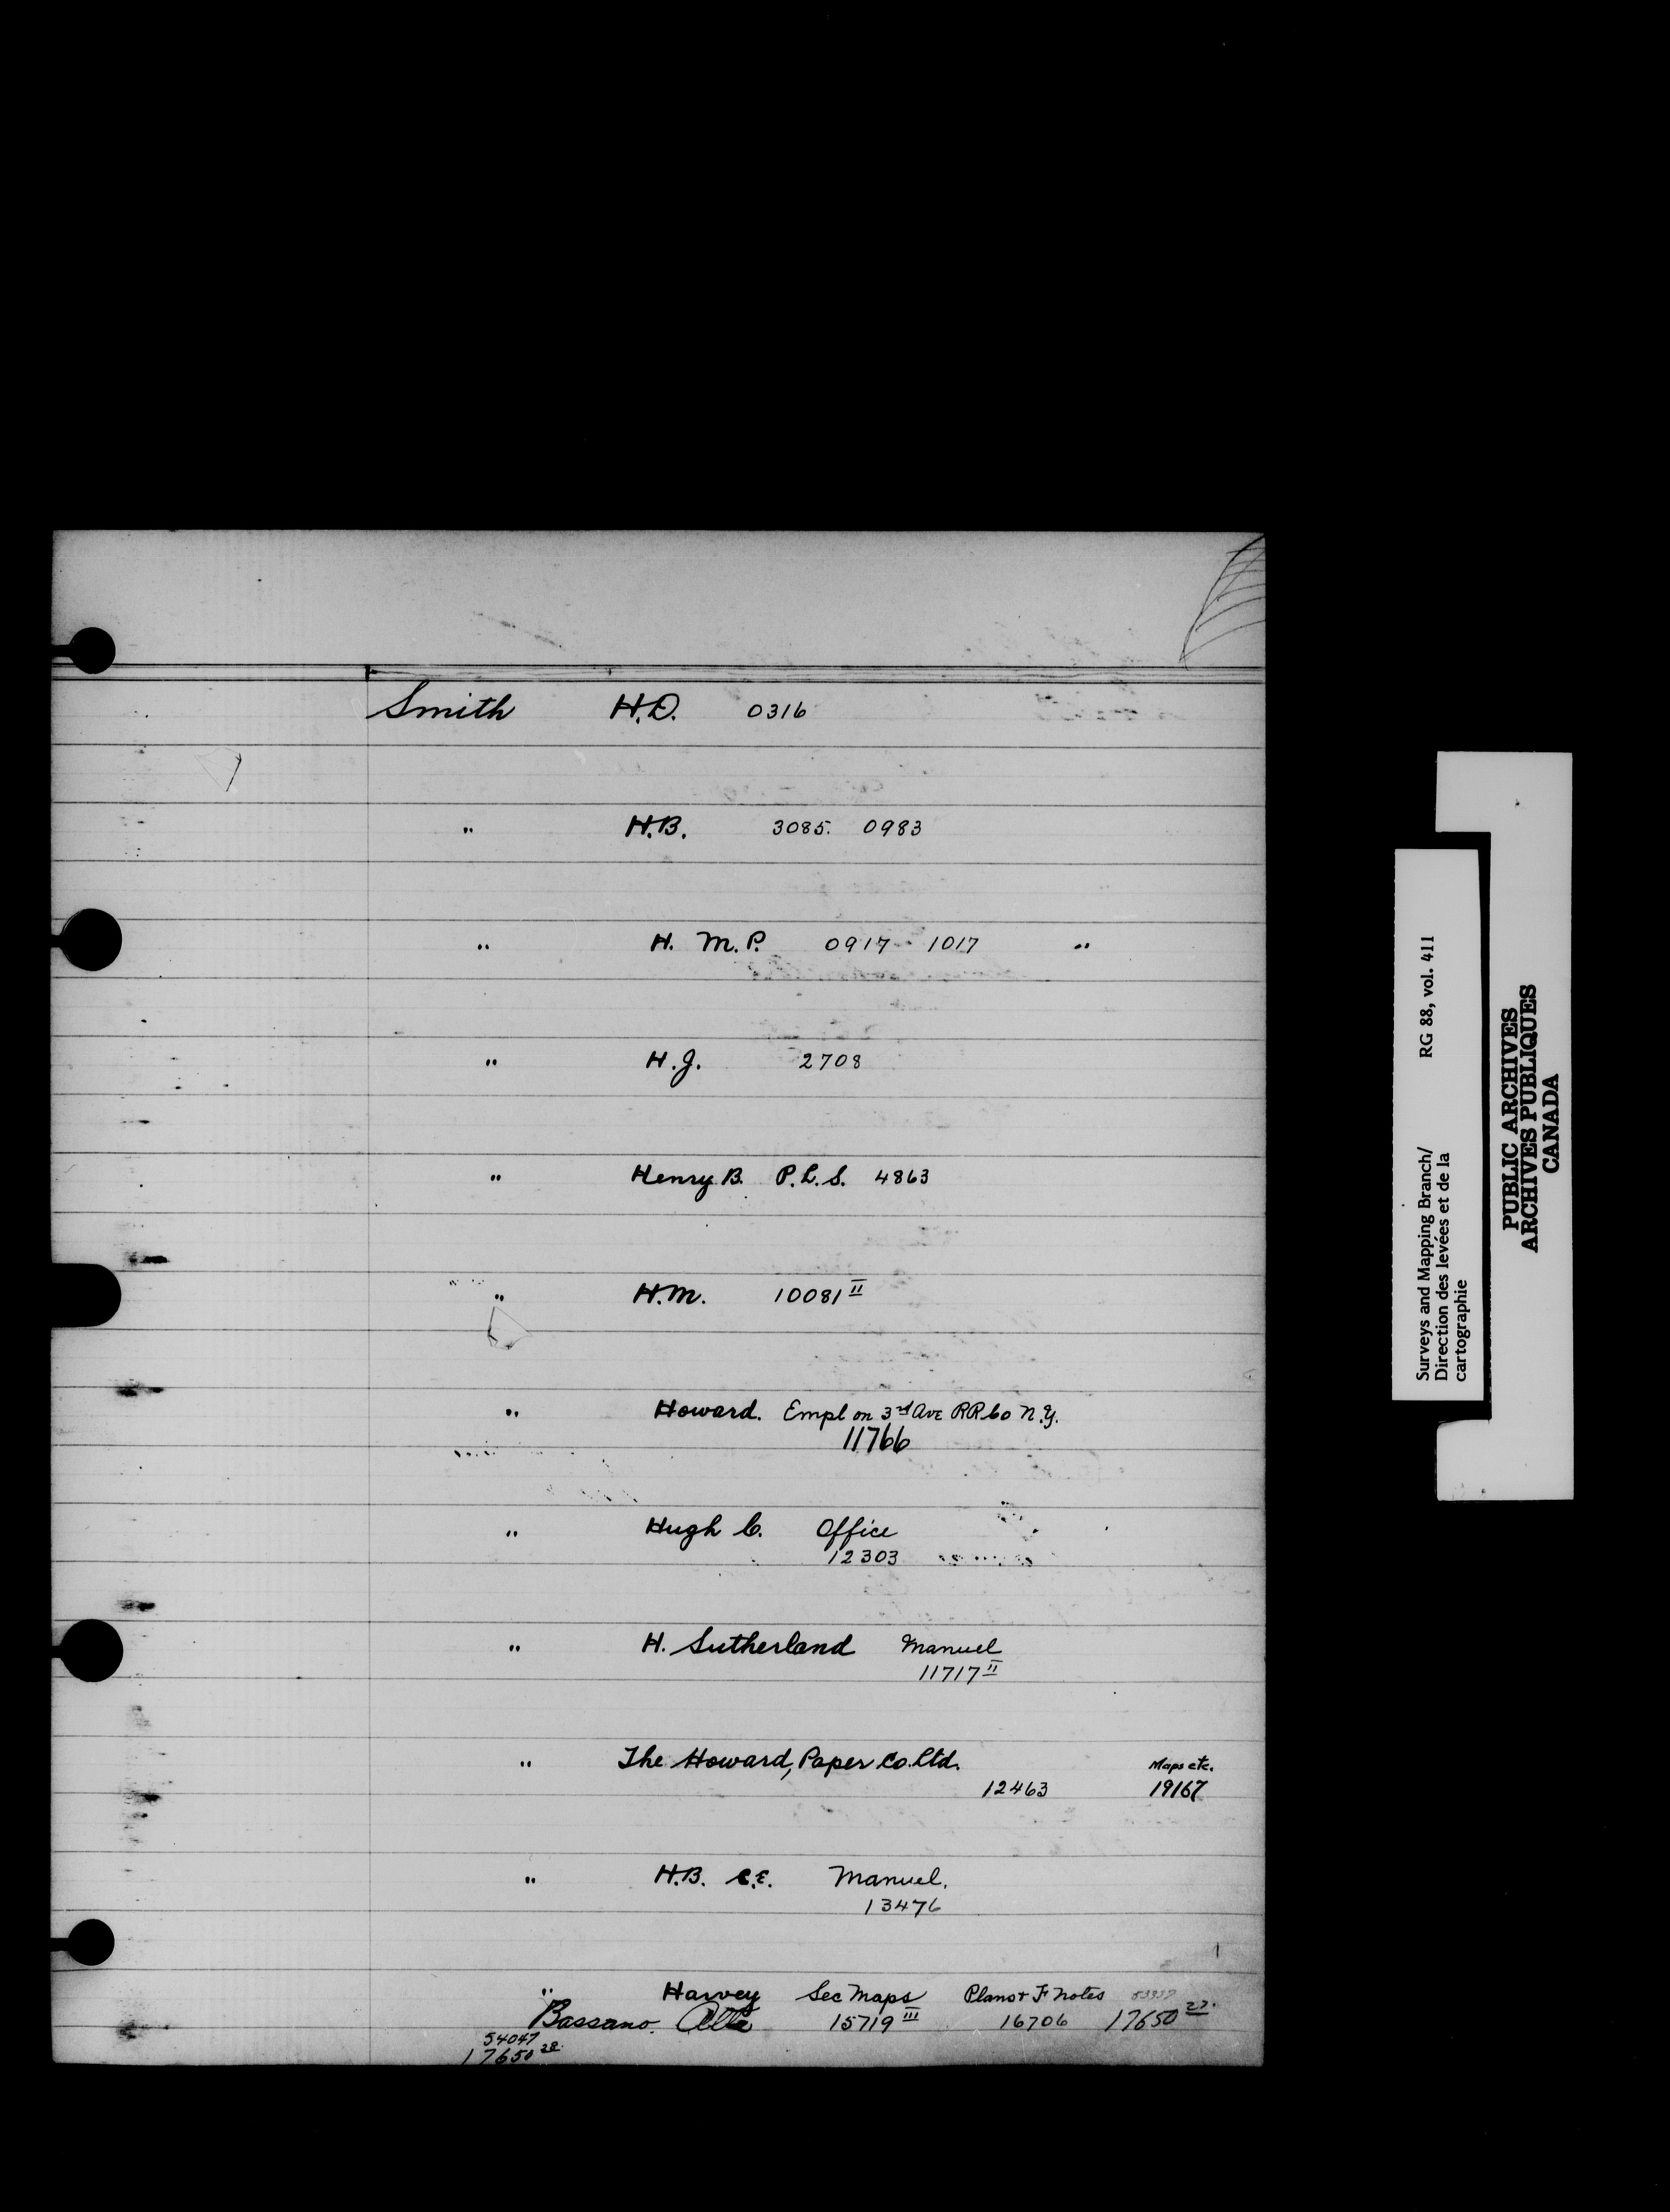 Smith H.D. 0316
" H.B. 3085. 0983
" H. M.P. 0917 - 1017 "
" H.J. 2708
" Henry B. P.L.S. 4863
" H.M. 10081 II
" Howard. Empl on 3rd Ave RR Co N.Y.
11766
" Hugh C. Office
12303
" H. Sutherland Manuel
11717 II
" The Howard, Paper Co. Ltd. Maps etc.
12463 19167
" H.B. C.E. Manuel.
13476
" Harvey Sec Maps Plans + F Notes
Bassano. Alta 15719 III 16706 17650 27.
54047
17650 28
Surveys and Mapping Branch/ RG 88, vol. 411
Direction des levées et de la
cartographie
PUBLIC ARCHIVES
ARCHIVES PUBLIQUES
CANADA